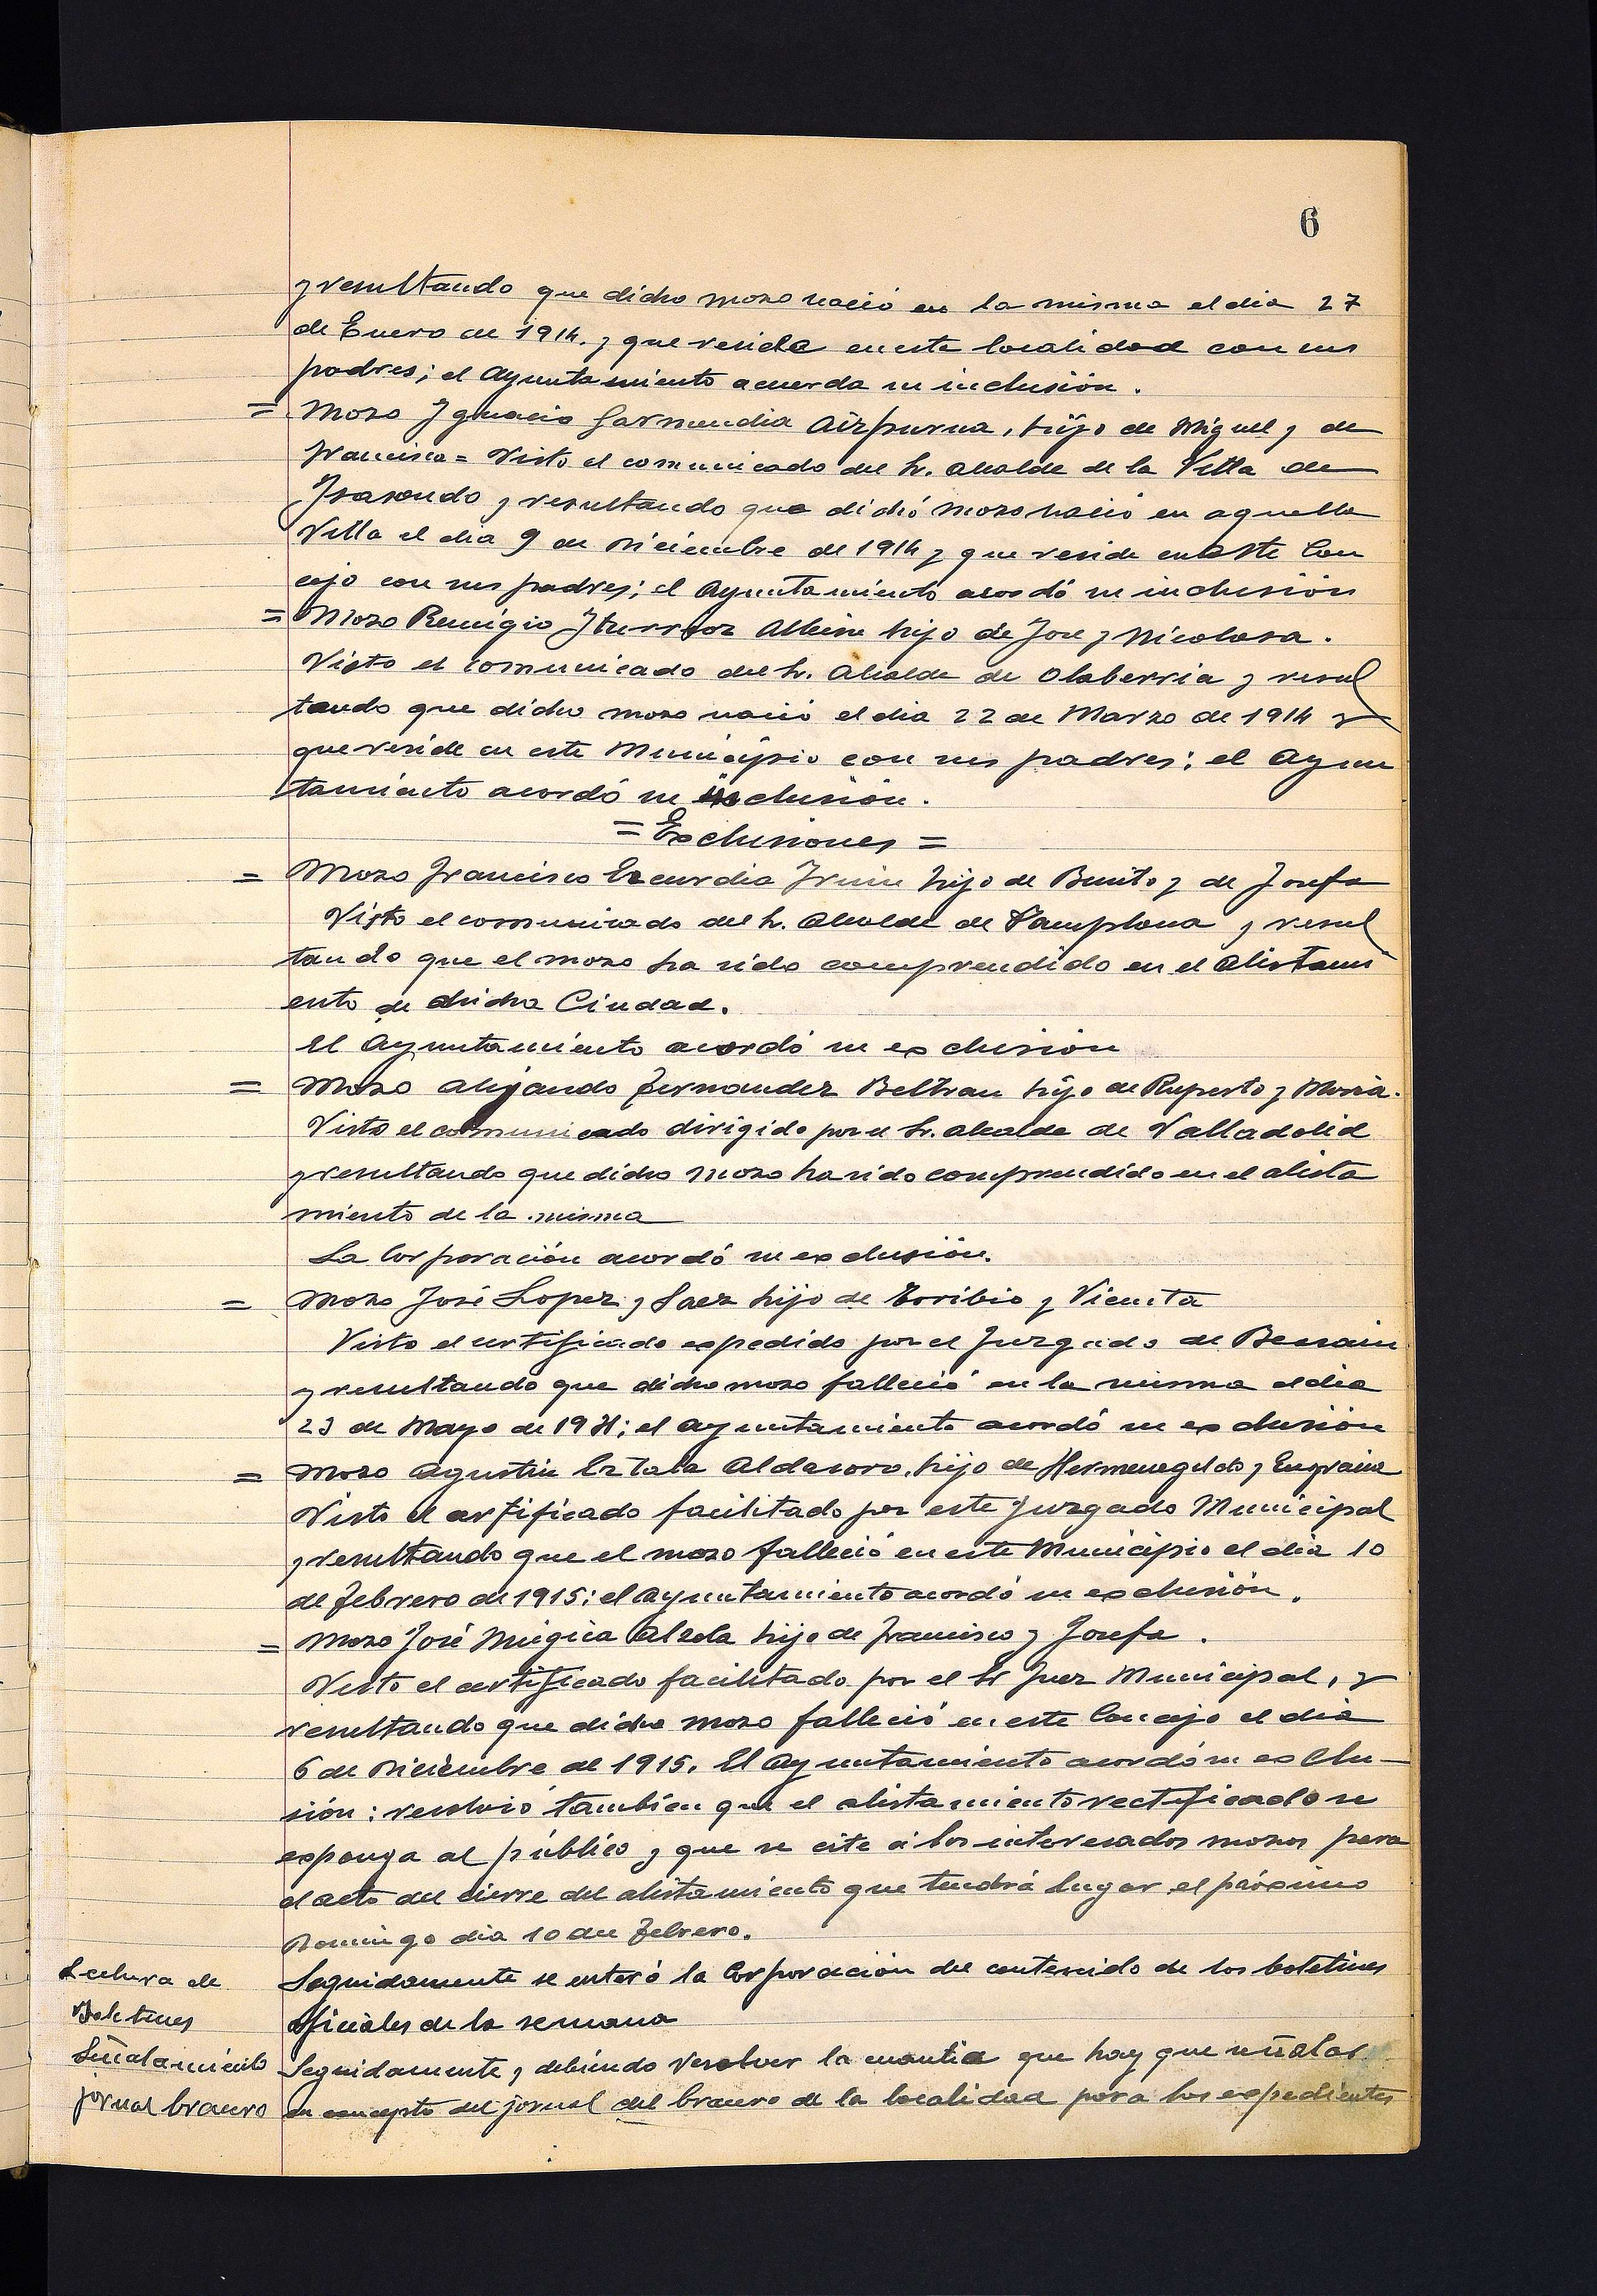 6
y resultando que dicho mozo nació en la misma el dia 27
de Enero de 1914. y que reside en esta localidad con sus
padres; el Ayuntamiento acuerda su inclusión.
= Mozo Ignacio Garmendia Aizpurua, hijo de Miguel y de
Francisca = Visto el comunicado del Sr. Alcalde de la Villa de
Isasondo y resultando que dichó mozo nació en aquella
Villa el dia 9 de Diciembre de 1914 y que reside en este Con
cejo con sus padres; el Ayuntamiento acordó su inclusión
= Mozo Remigio Iturrioz Alberdi hijo de Jose y Nicolasa.
Visto el comunicado del Sr. Alcalde de Olaberria y resul
tando que dicho mozo nació el dia 22 de Marzo de 1914 y
que reside en este Municipio con sus padres; el Ayun
tamiento acordó su inclusión.
= Exclusiones =
= Mozo Francisco Ezcurdia Irure hijo de Benito y de Josefa
Visto el comunicado del Sr. Alcalde de Pamplona y resul
tando que el mozo ha sido comprendido en el alistami
ento de dicha Ciudad.
El Ayuntamiento acordó su exclusión
= Mozo Alejando Fernandez Beltran hijo de Ruperto y Maria.
Visto el comunicado dirigido por el Sr. Alcalde de Valladolid
y resultando que dicho mozo ha sido comprendido en el alista
miento de la misma
La Corporación acordó su exclusión.
= Mozo José Lopez y Saez hijo de Toribio y Vicenta
Visto el certificado expedido por el Juzgado de Beasain
y resultando que dicho mozo falleció en la misma el dia
23 de Mayo de 1931; el ayuntamiento acordó su exclusión
= Mozo Agustin Eztala Aldasoro, hijo de Hermenegildo y Engracia
Visto el certificado facilitado por este Juzgado Municipal
y resultando que el mozo falleció en este Municipio el dia 10
de Febrero de 1915; el Ayuntamiento acordó su exclusión.
= Mozo José Mugica Alzola hijo de Francisco y Josefa.
Visto el certificado facilitado por el Sr Juez Municipal, y
resultando que dicho mozo falleció en este Concejo el dia
6 de Diciembre de 1915. El Ayuntamiento acordó su exclu-
sión: resolvió también que el alistamiento rectificado se
exponga al público y que se cite a los interesados mozos para
el acto del cierre del alistamiento que tendrá lugar el próximo
Domingo dia 10 de Febrero.
Lectura de
Boletines
Seguidamente se enteró la Corporación del contenido de los boletines
oficiales de la semana
Señalamiento
jornal bracero
Seguidamente y debiendo resolver la cuantia que hay que señalar
en concepto del jornal del bracero de la localidad para los expedientes